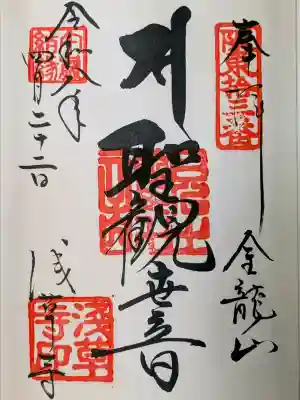 奉拝
坂東十三番
金龍山
聖観世音
浅草寺
浅草寺印
令和八年
四月二十二日